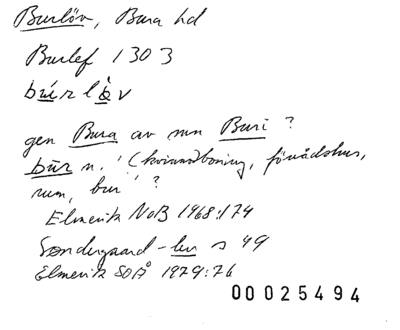 Burlöv, Bara hd
Burlef 1303
búrlöv
gen Bura av mn Buri ?
būr n. '(kvinno)boning, förrådshus,
rum, bur' ?
Elmevik NoB 1968:174
Søndergaard -lev s 49
Elmevik SOÅ 1979:76
00025494